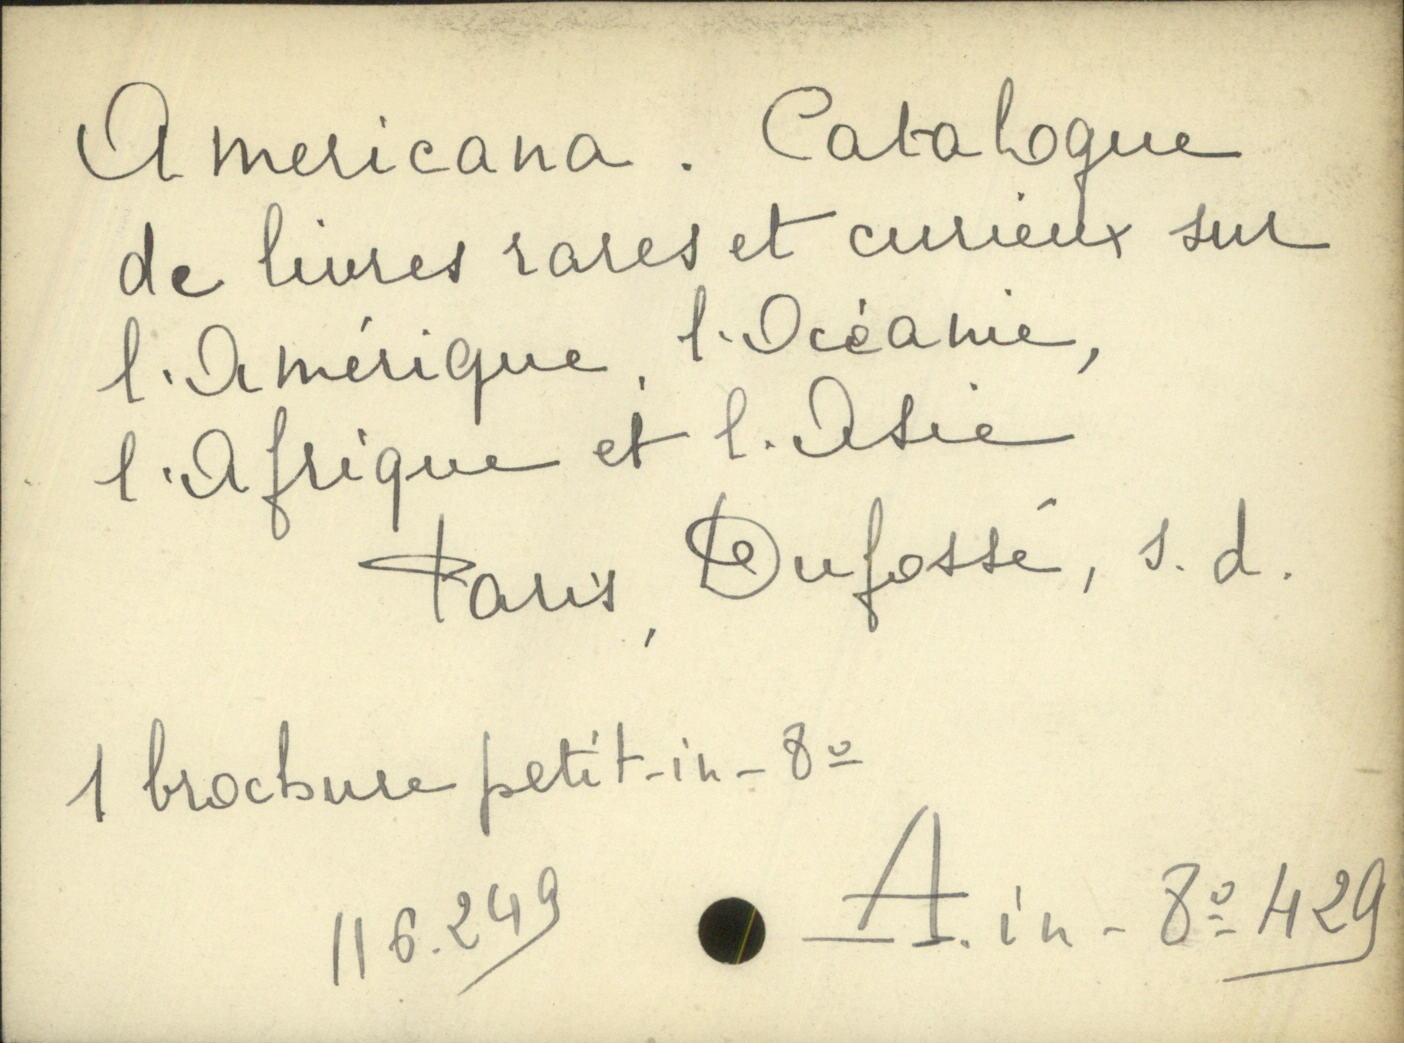 Americana. Catalogue
de livres rares et curieux sur
l'Amérique, l'Océanie,
l'Afrique et l'Asie
Paris, Dufossé, s. d.
1 brochure petit-in-8º
116.249
A. in-8º 429